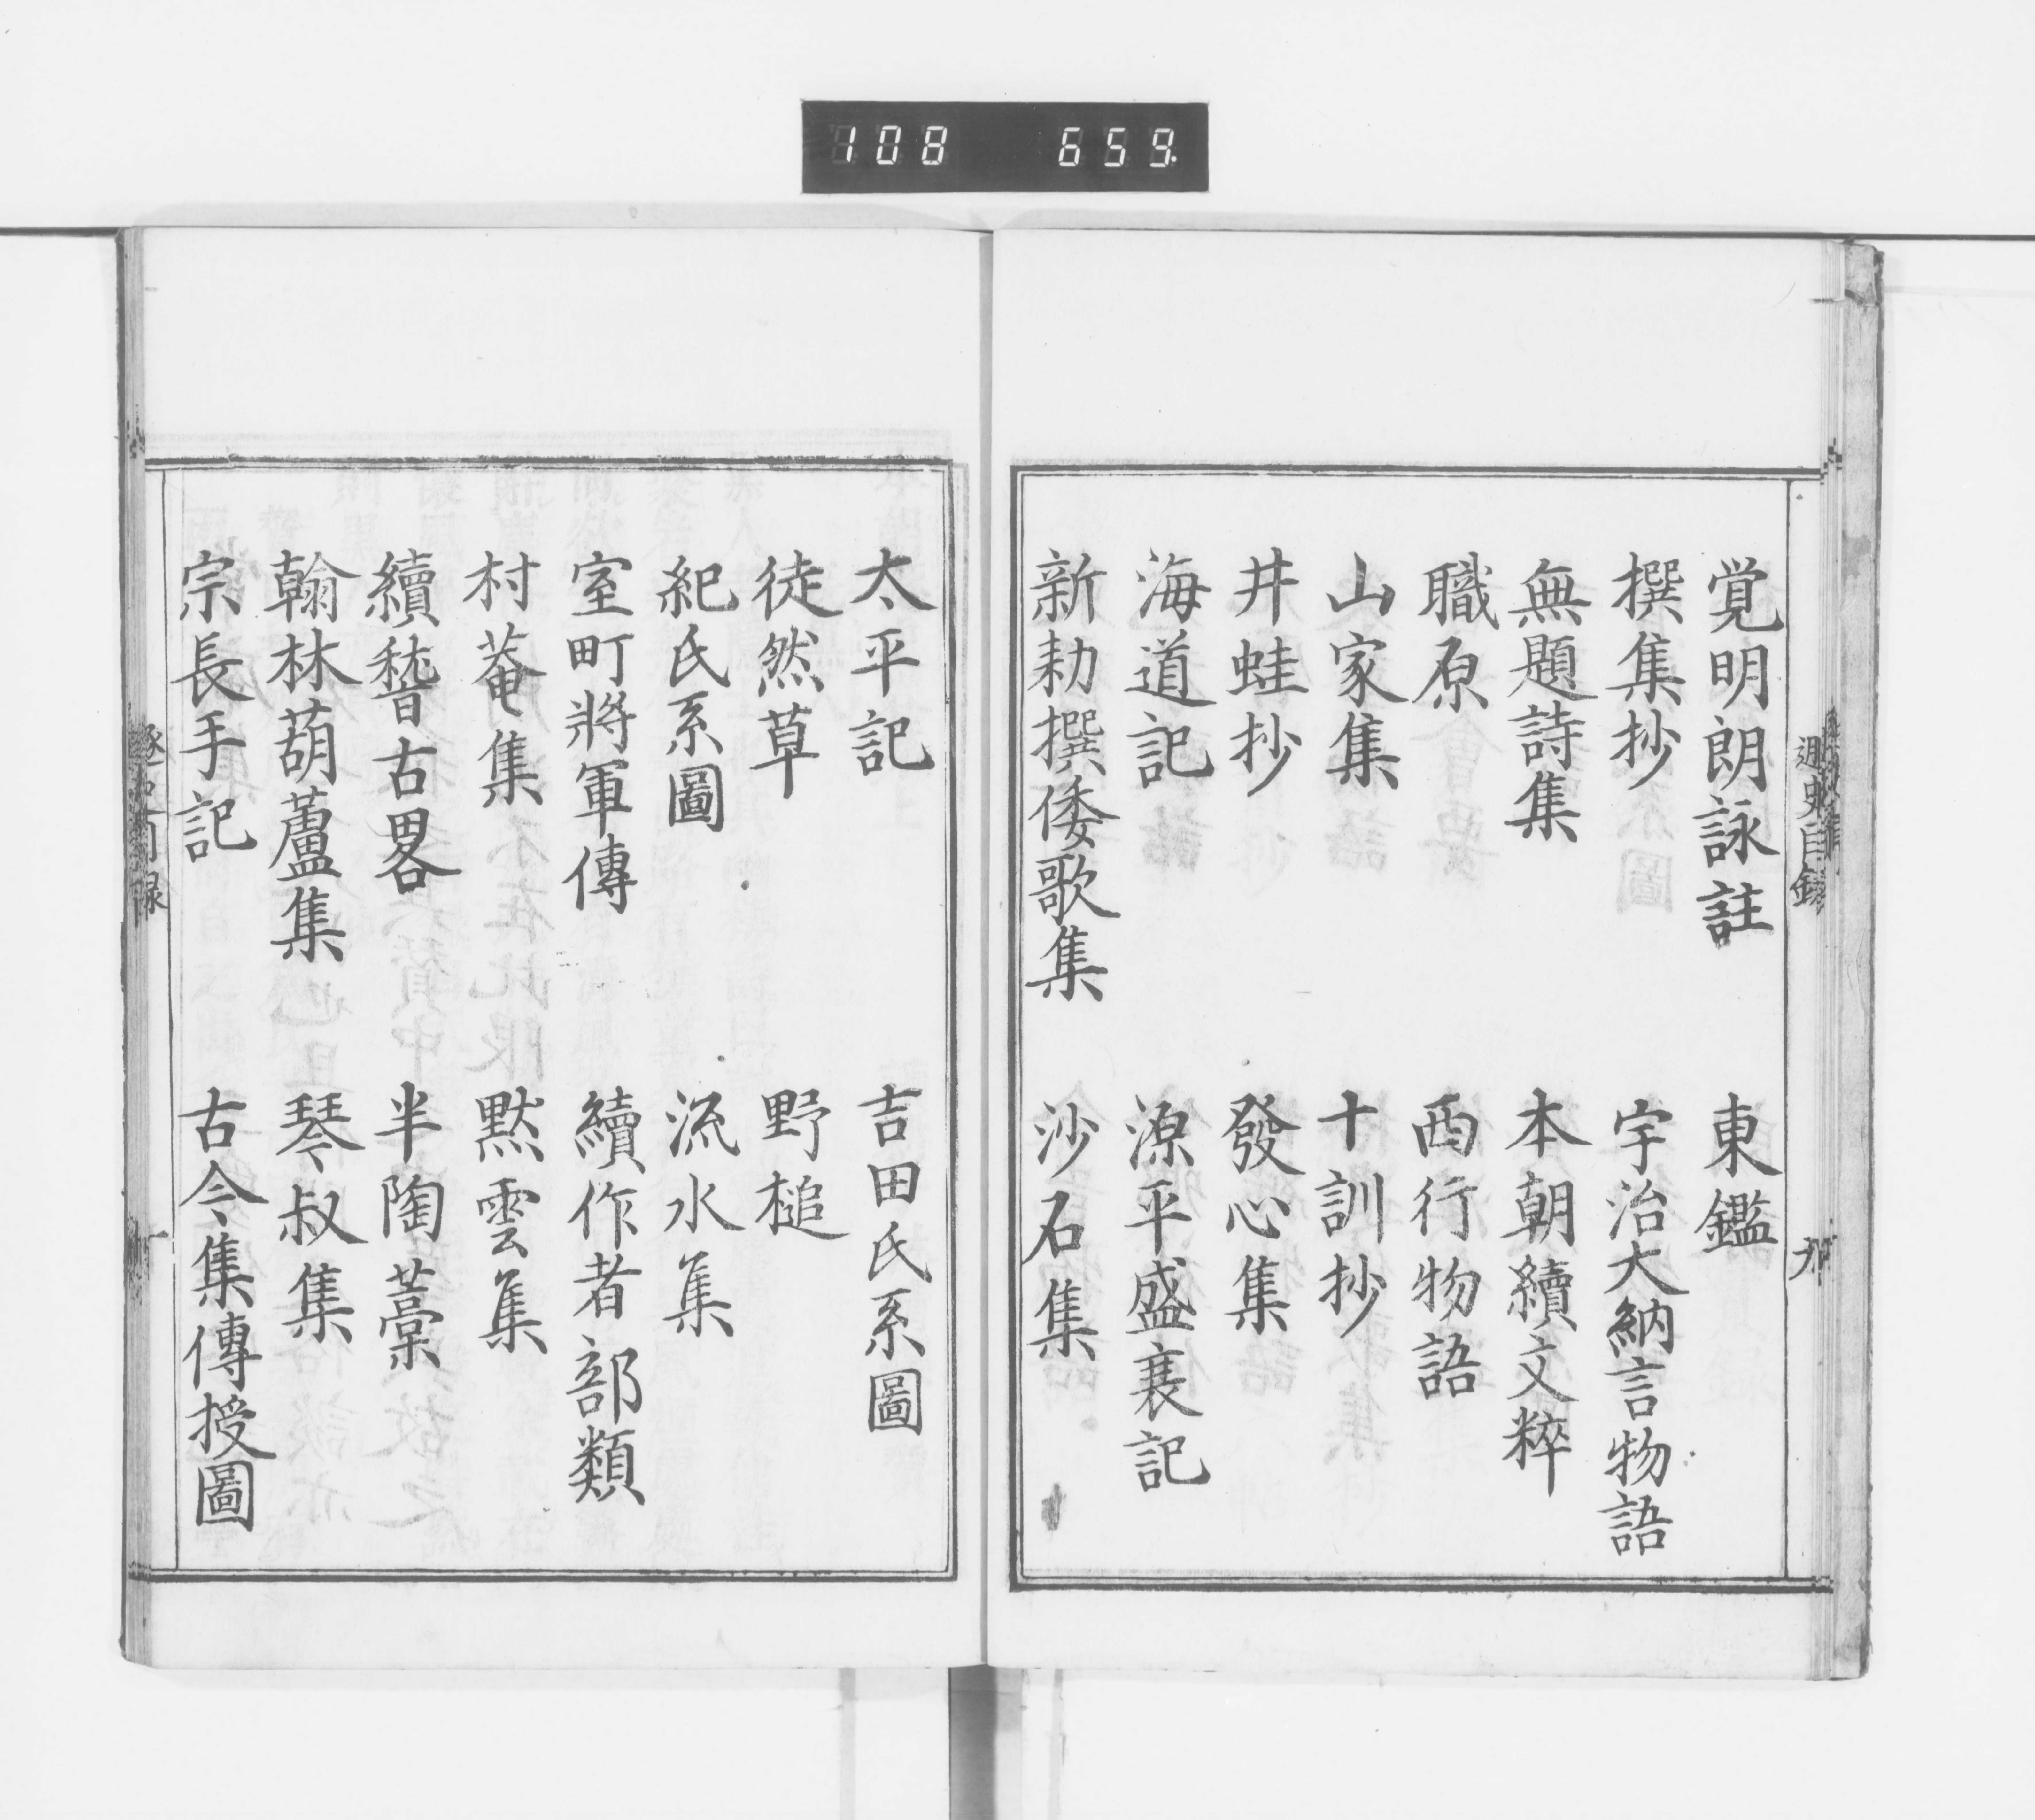 108 659
覚明朗詠註 東鑑
撰集抄 宇治大納言物語
無題詩集 本朝續文粹
職原 西行物語
山家集 十訓抄
井蛙抄 發心集
海道記 源平盛衰記
新勅撰倭歌集 沙石集
太平記 吉田氏系圖
徒然草 野槌
紀氏系圖 流水集
室町將軍傳 續作者部類
村菴集 黙雲集
續嵆古畧 半陶藁
翰林葫蘆集 琴叔集
宗長手記 古今集傳授圖